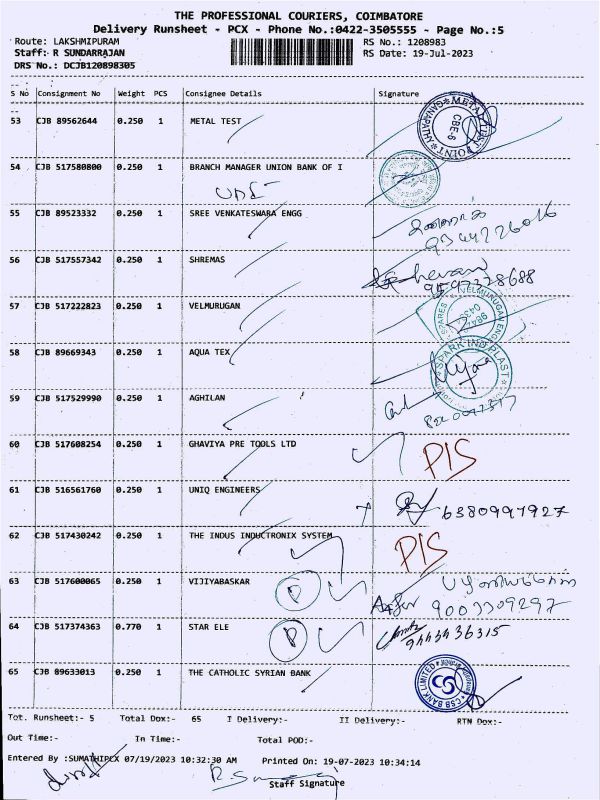 THE PROFESSIONAL COURIERS, COIMBATORE
Delivery Runsheet - PCX - Phone No.:0422-3505555 - Page No.:5
Route: LAKSHMIPURAM RS No.: 1208983
Staff: R SUNDARRAJAN RS Date: 19-Jul-2023
DRS No.: DCJB120898305
S No Consignment No Weight PCS Consignee Details Signature
53 CJB 89562644 0.250 1 METAL TEST
METAL TEST POINT CBE-6
54 CJB 517580800 0.250 1 BRANCH MANAGER UNION BANK OF I
UBI
55 CJB 89523332 0.250 1 SREE VENKATESWARA ENGG
9344226016
56 CJB 517557342 0.250 1 SHREMAS
9597378688
57 CJB 517222823 0.250 1 VELMURUGAN
VELMURUGAN ENGG SPARES
58 CJB 89669343 0.250 1 AQUA TEX
SPARK IND PLAST
59 CJB 517529990 0.250 1 AGHILAN
60 CJB 517608254 0.250 1 GHAVIYA PRE TOOLS LTD PIS
61 CJB 516561760 0.250 1 UNIQ ENGINEERS 6380997927
62 CJB 517430242 0.250 1 THE INDUS INDUCTRONIX SYSTEM PIS
63 CJB 517600065 0.250 1 VIJIYABASKAR P
9003309297
64 CJB 517374363 0.770 1 STAR ELE P 9443436315
65 CJB 89633013 0.250 1 THE CATHOLIC SYRIAN BANK
CSB BANK LIMITED
Tot. Runsheet:- 5 Total Dox:- 65 I Delivery:- II Delivery:- RTN Dox:-
Out Time:- In Time:- Total POD:-
Entered By :SUMATHIPCX 07/19/2023 10:32:30 AM Printed On: 19-07-2023 10:34:14
Staff Signature